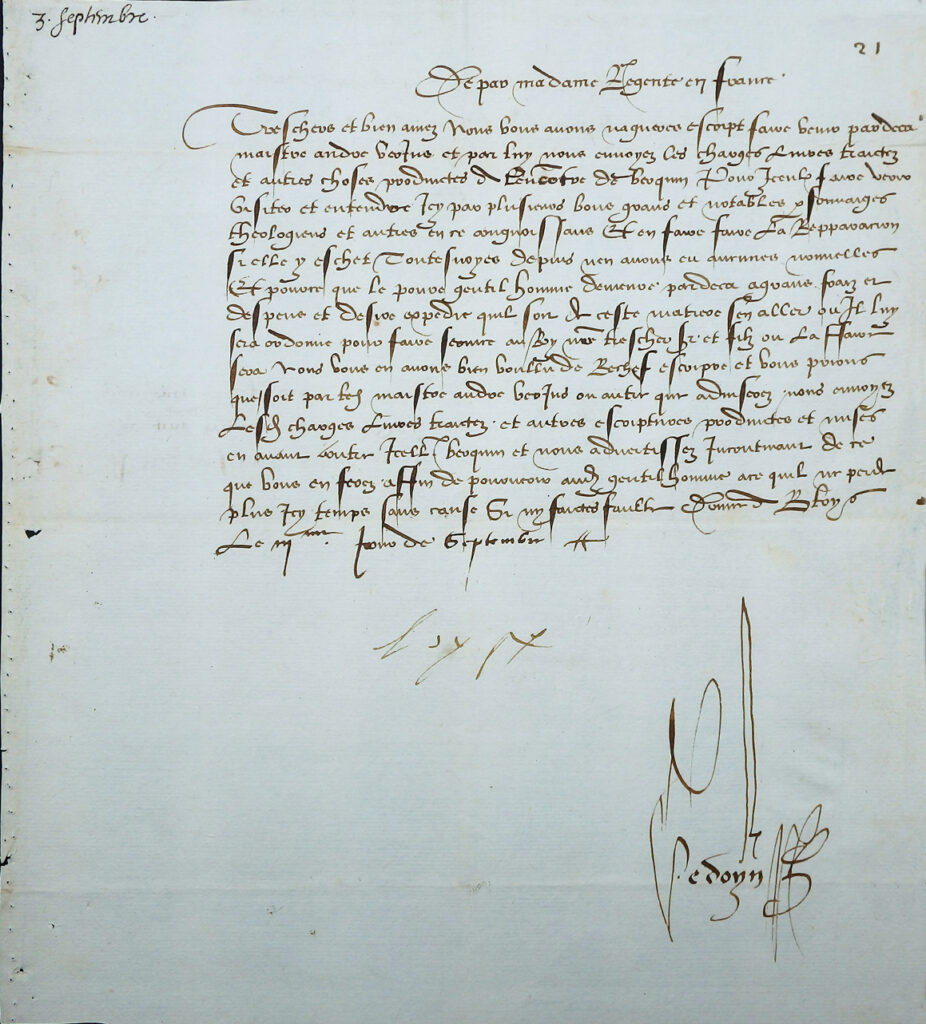 3. Septembre.
21
De par madame Regente en france.
Tres chers et bien amez Nous vous avons nagueres escript faire venir pardeca
maistre andre verjus et par luy nous envoyez les charges livres traictez
et autres choses produictes a l'encontre de berquin Pour iceulx faire veoir
visiter et entendre Icy par plusieurs bons grans et notables psonnaiges
theologiens et autres en ce congnoissans Et en faire faire La Repparacion
si elle y eschet Toutesvoyes depuis nen avons eu aucunes nouvelles
Et pource que le povre gentil homme demeure pardeca a grans fraiz et
despens et desire expedie quil soit de ceste matiere sen aller ou Il luy
sera ordonne pour faire service au Roy nre trescher sr et filz ou La
sera Nous vous en avons bien voullu de Rechef escripre et vous prions
que soit par led maistre andre verjus ou autre que adviserez nous envoyez
Lesd charges Livres traictez et autres escriptures produictes et mises
en avant contre Icelluy berquin et nous advertissez Incontinant de ce
que vous en ferez affin de pourveoir aud gentilhomme a ce quil ne perde
plus Icy temps sans cause Si ny faictes faulte Donne a Bloys
Le iii me Jour de Septembre
Loyse
Hedoyn